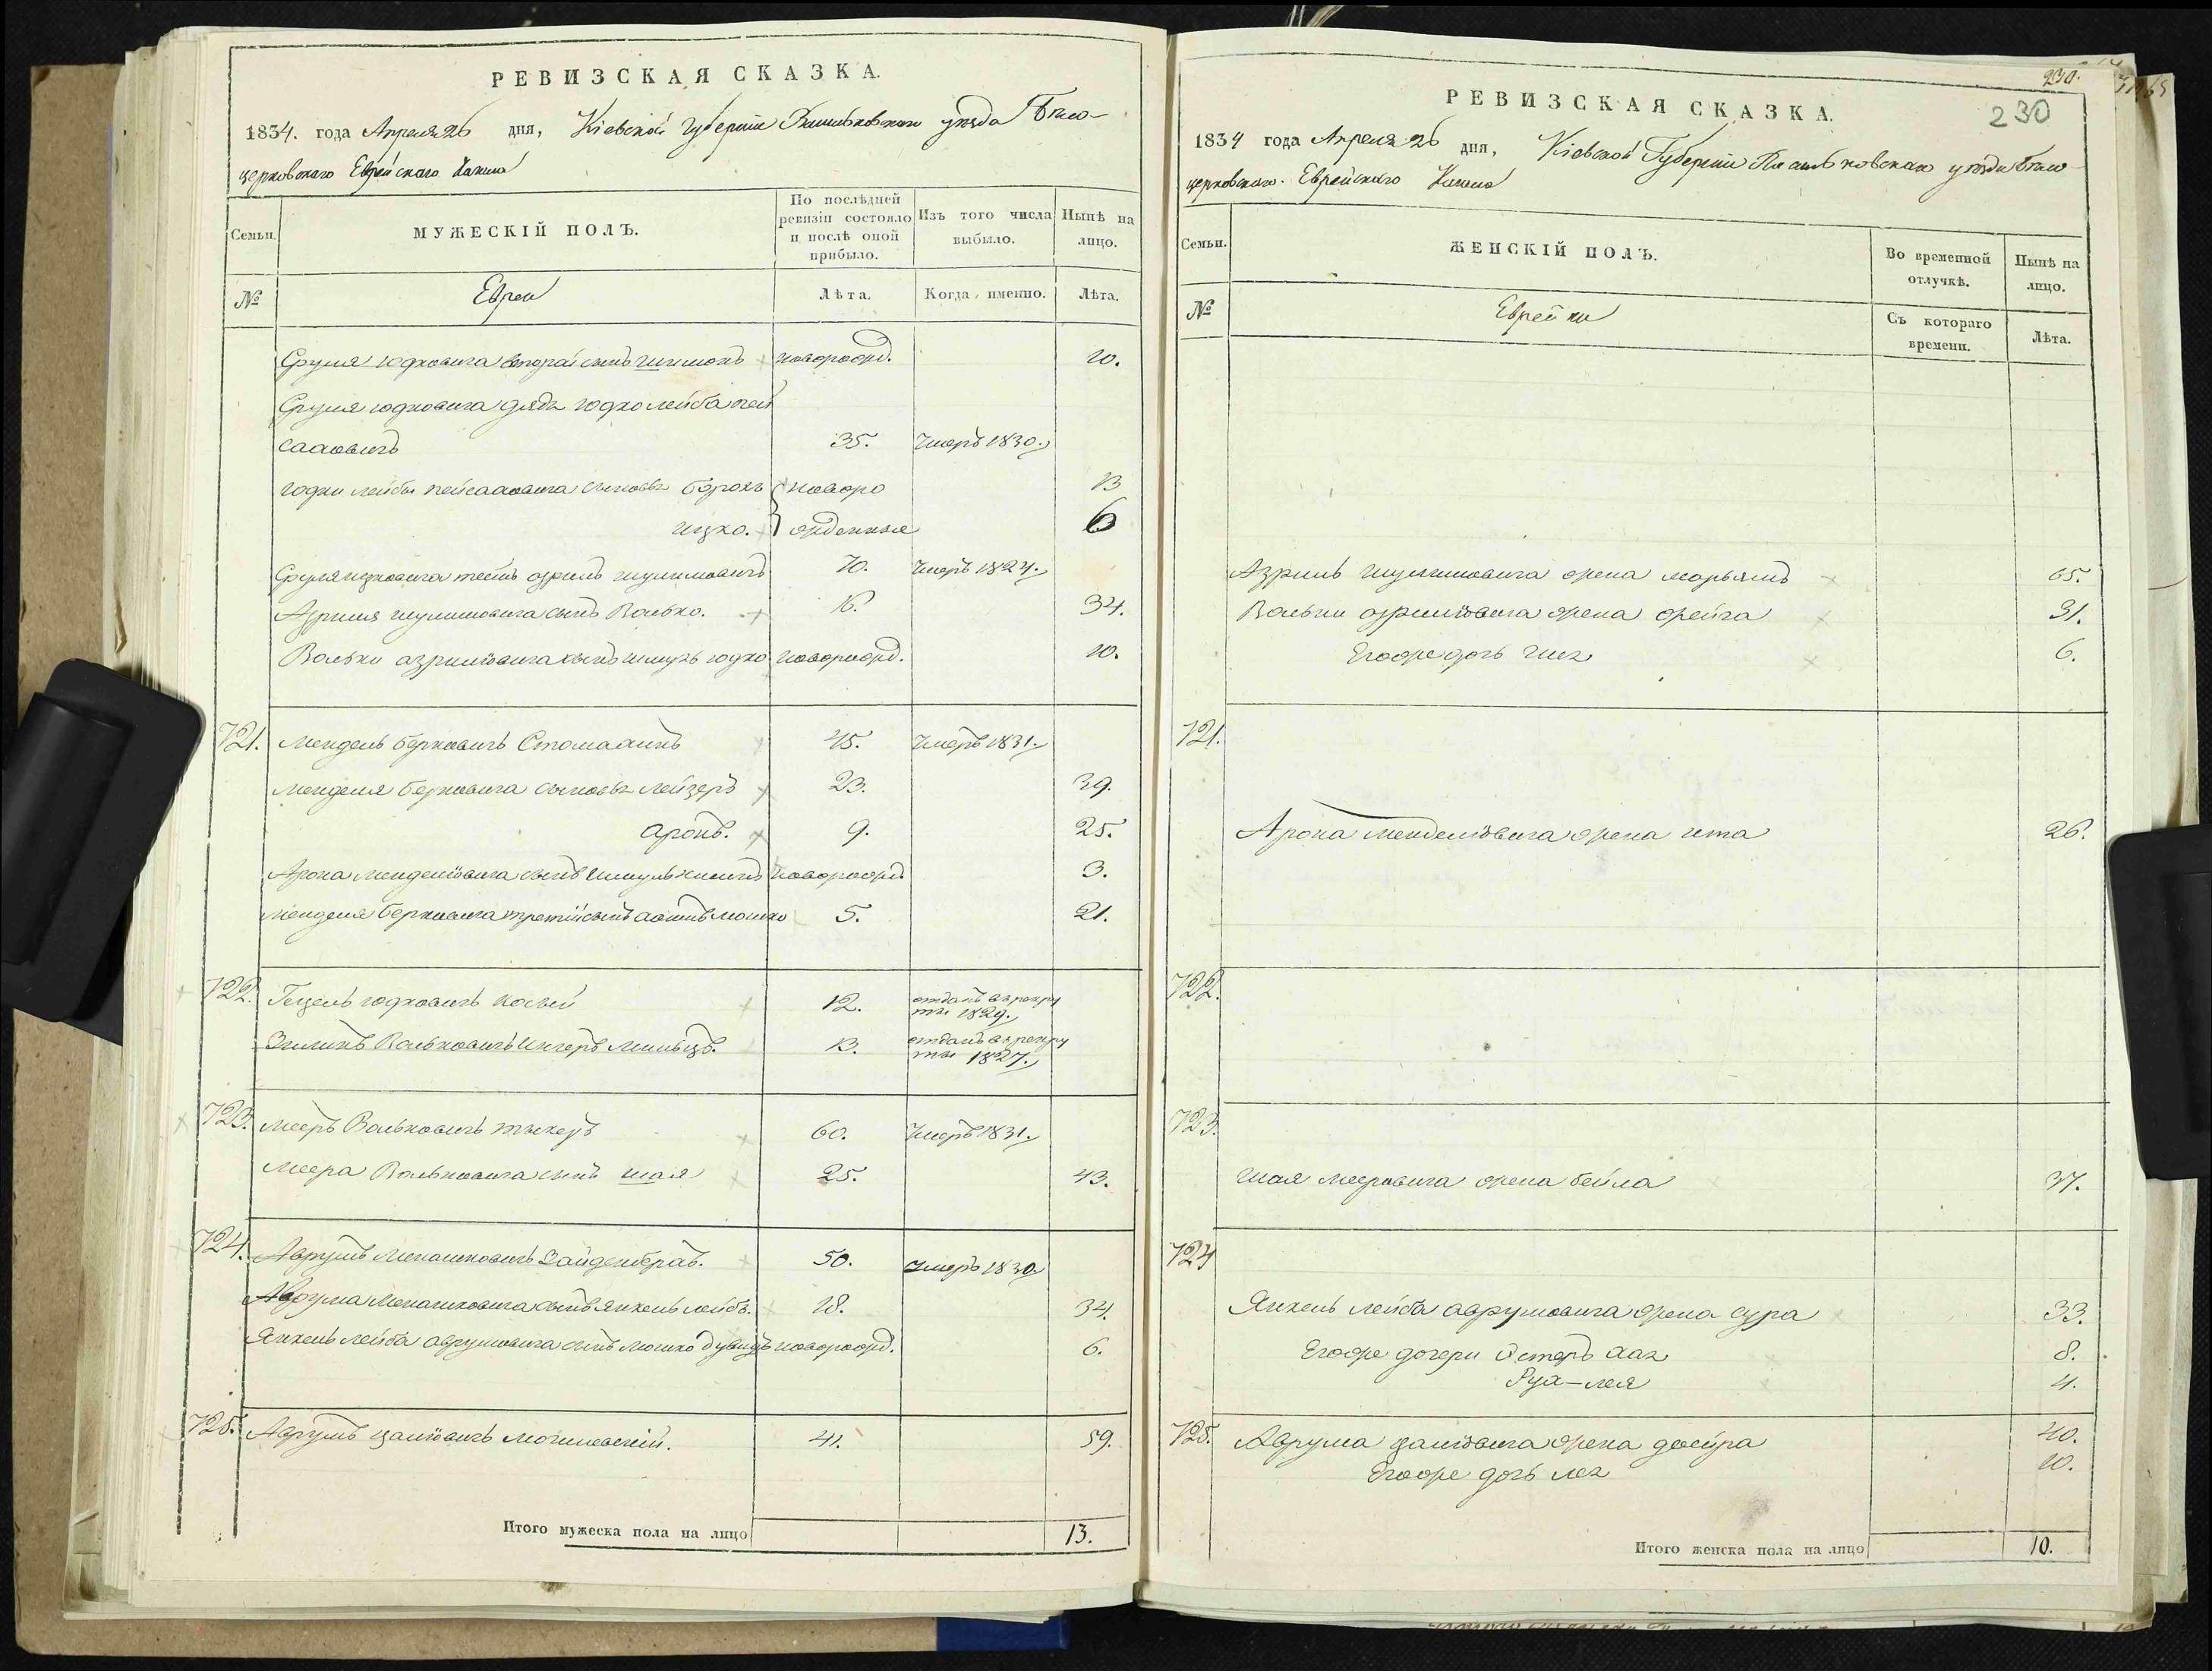 РЕВИЗСКАЯ СКАЗКА.
1834. года Апреля 26 дня, Кіевской Губерніи Васильковскаго уѣзда Бѣло-
церковскаго Еврейскаго Кагала
Семьи.
МУЖЕСКІЙ ПОЛЪ.
По послѣдней ревизіи состояло и послѣ оной прибыло.
Изъ того числа выбыло.
Нынѣ на лицо.
№
Евреи
Лѣта.
Когда именно.
Лѣта.
Сруля Юдковича второй сынъ Шимонъ новорожд. 10.
Сруля Юдковича дядя Юдко Лейба Пей
саховичъ 35. Умеръ 1830.
Юдки Лейбы Пейсаховича сыновья Борохъ новоро 13
Ицко. жденные 6
Сруля Ицковича тесть Озриль Шулимовичъ 70. Умеръ 1824.
Азриля Шулимовича сынъ Волько. 16. 34.
Вольки Азрилёвича сынъ Шмуль Юдко новорожд. 10.
721. Мендель Берковичъ Стомахинъ 45. Умеръ 1831.
Менделя Берковича сыновья Лейзеръ 23. 39.
Аронъ. 9. 25.
Арона Менделёвича сынъ новорожд. 3.
Менделя Берковича третій сынъ Мошко 5. 21.
722. Гецель Юдковичъ 12. отданъ въ рекру
ты 1829.
Зиликъ Вольковичъ 13. отданъ въ рекру
ты 1827.
723. Мееръ Вольковичъ 60. Умеръ 1831.
Меера Вольковича сынъ Шая 25. 43.
724. Аврумъ Менашковичъ Зайденберг. 50. Умеръ 1830
Аврума Менашковича сынъ Янкель Лейба. 18. 34.
Янкель Лейба Аврумовича сынъ Мошко новорожд. 6.
725. Аврумъ Цалёвичъ Могилевскій. 41. 59.
Итого мужеска пола на лицо 13.
230.
230
РЕВИЗСКАЯ СКАЗКА.
1834 года Апреля 26 дня, Кіевской Губерніи Васильковскаго уѣзда Бѣло-
церковскаго Еврейскаго Кагала
Семьи.
ЖЕНСКІЙ ПОЛЪ.
Во временной отлучкѣ.
Нынѣ на лицо.
№
Еврейки
Съ котораго времени.
Лѣта.
Азриль Шулимовича жена Марьямъ 65.
Вольки Азрилёвича жена Фейга 31.
Егоже дочь 6.
721.
Арона Менделёвича жена Ита 26.
722.
723.
Шая Мееровича жена Бейла 37.
724
Янкель Лейба Аврумовича жена Сура 33.
Егоже дочери Эстеръ Хая 8.
Рухля 4.
725. Аврума Цалёвича жена Двейра 40.
Егоже дочь Лея 10.
Итого женска пола на лицо 10.